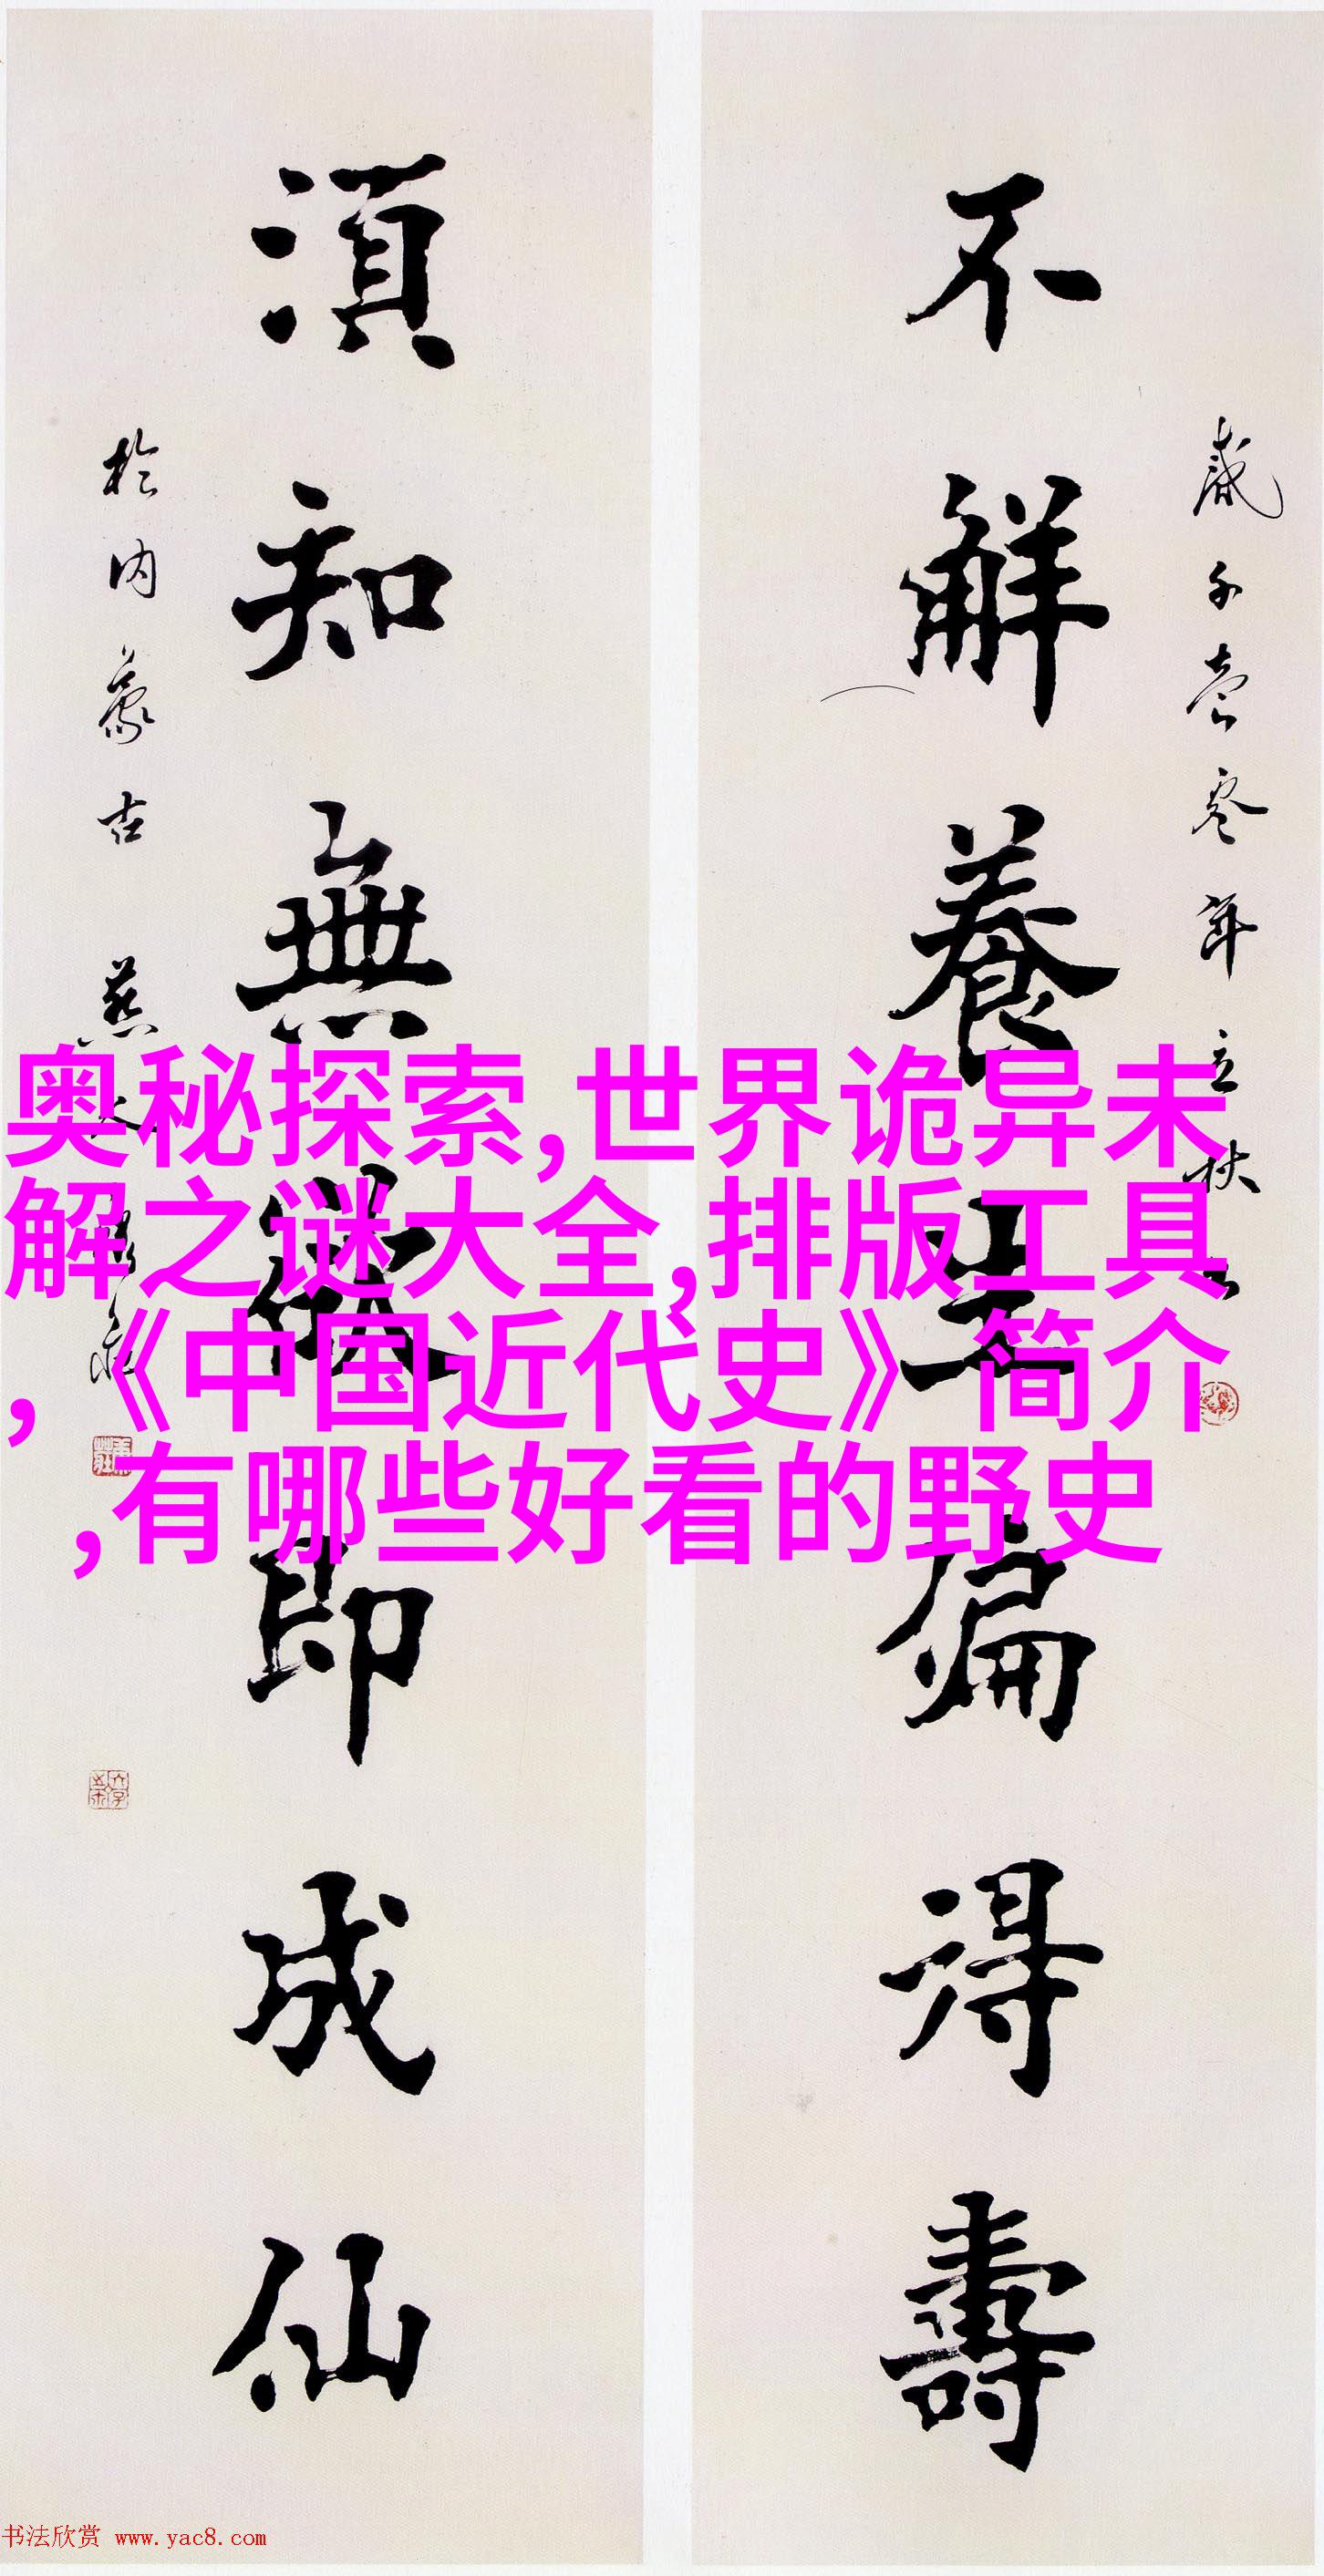 不解養生偏得壽
歲于壹零年立秋
須知無欲即成仙
於内蒙古
奥秘探索,世界诡异未
解之谜大全,排版工具
,《中国近代史》简介
,有哪些好看的野史
书法欣赏 www.yac8.com